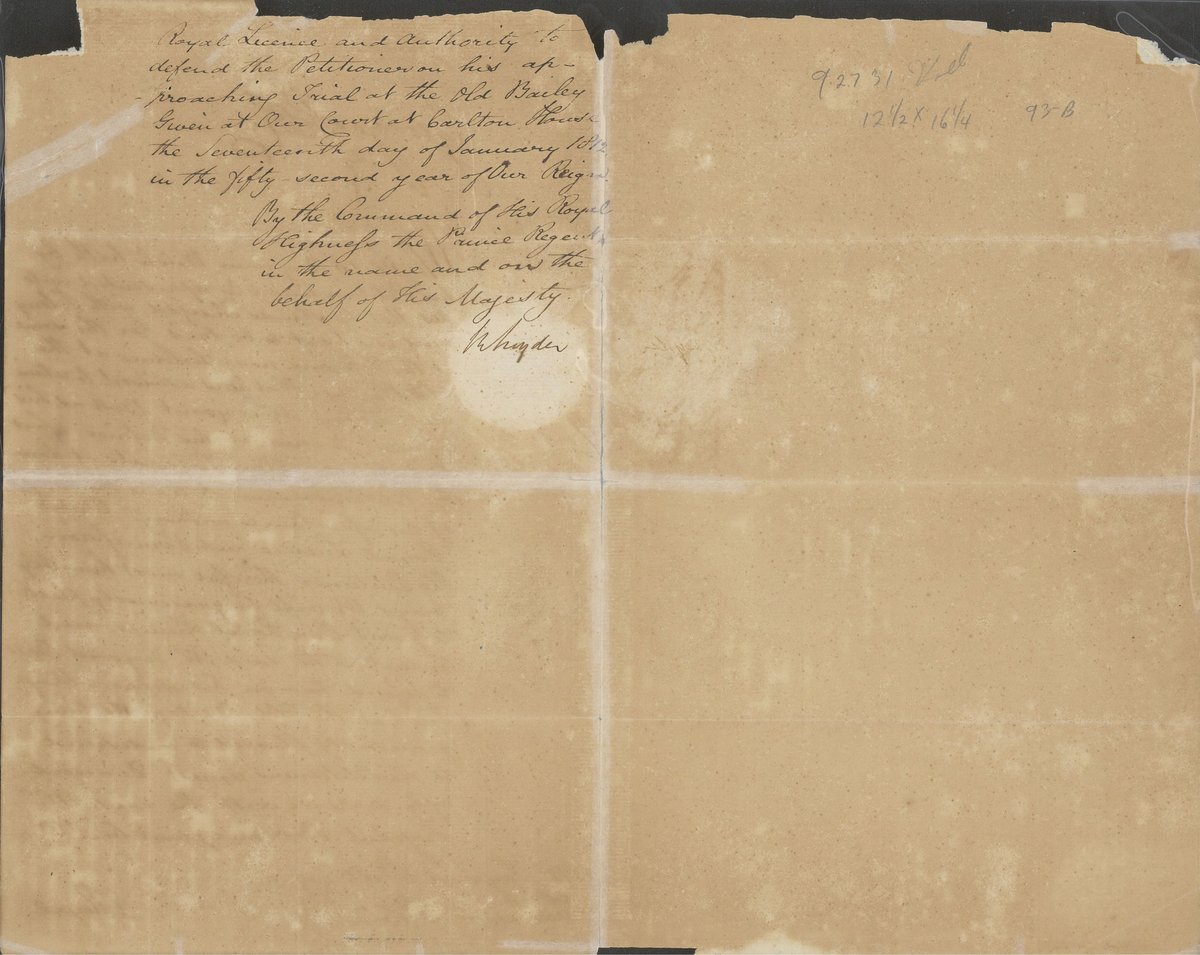 Royal Licence and Authority to
defend the Petitioner on his ap-
proaching Trial at the Old Bailey
Given at Our Court at Carlton House
the Seventeenth day of January 1812
in the fifty-second year of Our Reign
By the Command of His Royal
Highness the Prince Regent
in the name and on the
behalf of His Majesty.
Ryder
9.27 31
12 1/2 X 16 1/4
93-B